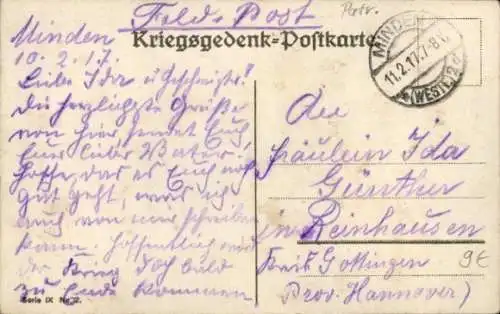 Feld-Post
Portr.
Kriegsgedenk-Postkarte
MINDEN
11.2.17.7-8V.
*(WESTF.)2a
Minden
10.2.17.
Liebe Ida u Geschwister!
Die herzlichste Grüße
von hier sendet Euch
Euer lieber Vater.
Hoffe, das es Euch noch
gut geht, was ich
auch von mir schreiben
kann. Hoffentlich wird
der Krieg doch bald
zu Ende kommen
An
Fräulein Ida
Günther
in Reinhausen
Kreis Gottingen
Prov. Hannover)
9€
Serie IX No 2.